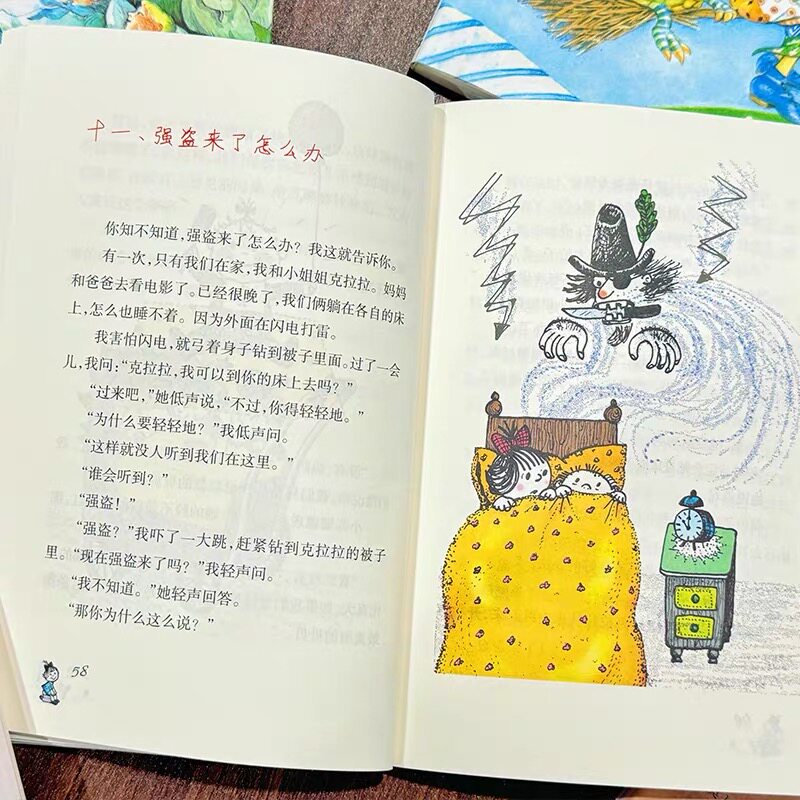 十一、强盗来了怎么办
你知不知道,强盗来了怎么办?我这就告诉你。
有一次,只有我们在家,我和小姐姐克拉拉。妈妈
和爸爸去看电影了。已经很晚了,我们俩躺在各自的床
上,怎么也睡不着。因为外面在闪电打雷。
我害怕闪电,就弓着身子钻到被子里面。过了一会
儿,我问:“克拉拉,我可以到你的床上去吗?”
“过来吧,”她低声说,“不过,你得轻轻地。”
“为什么要轻轻地?”我低声问。
“这样就没人听到我们在这里。”
“谁会听到?”
“强盗!”
“强盗?”我吓了一大跳,赶紧钻到克拉拉的被子
里。“现在强盗来了吗?”我轻声问。
“我不知道。”她轻声回答。
“那你为什么这么说?”
58